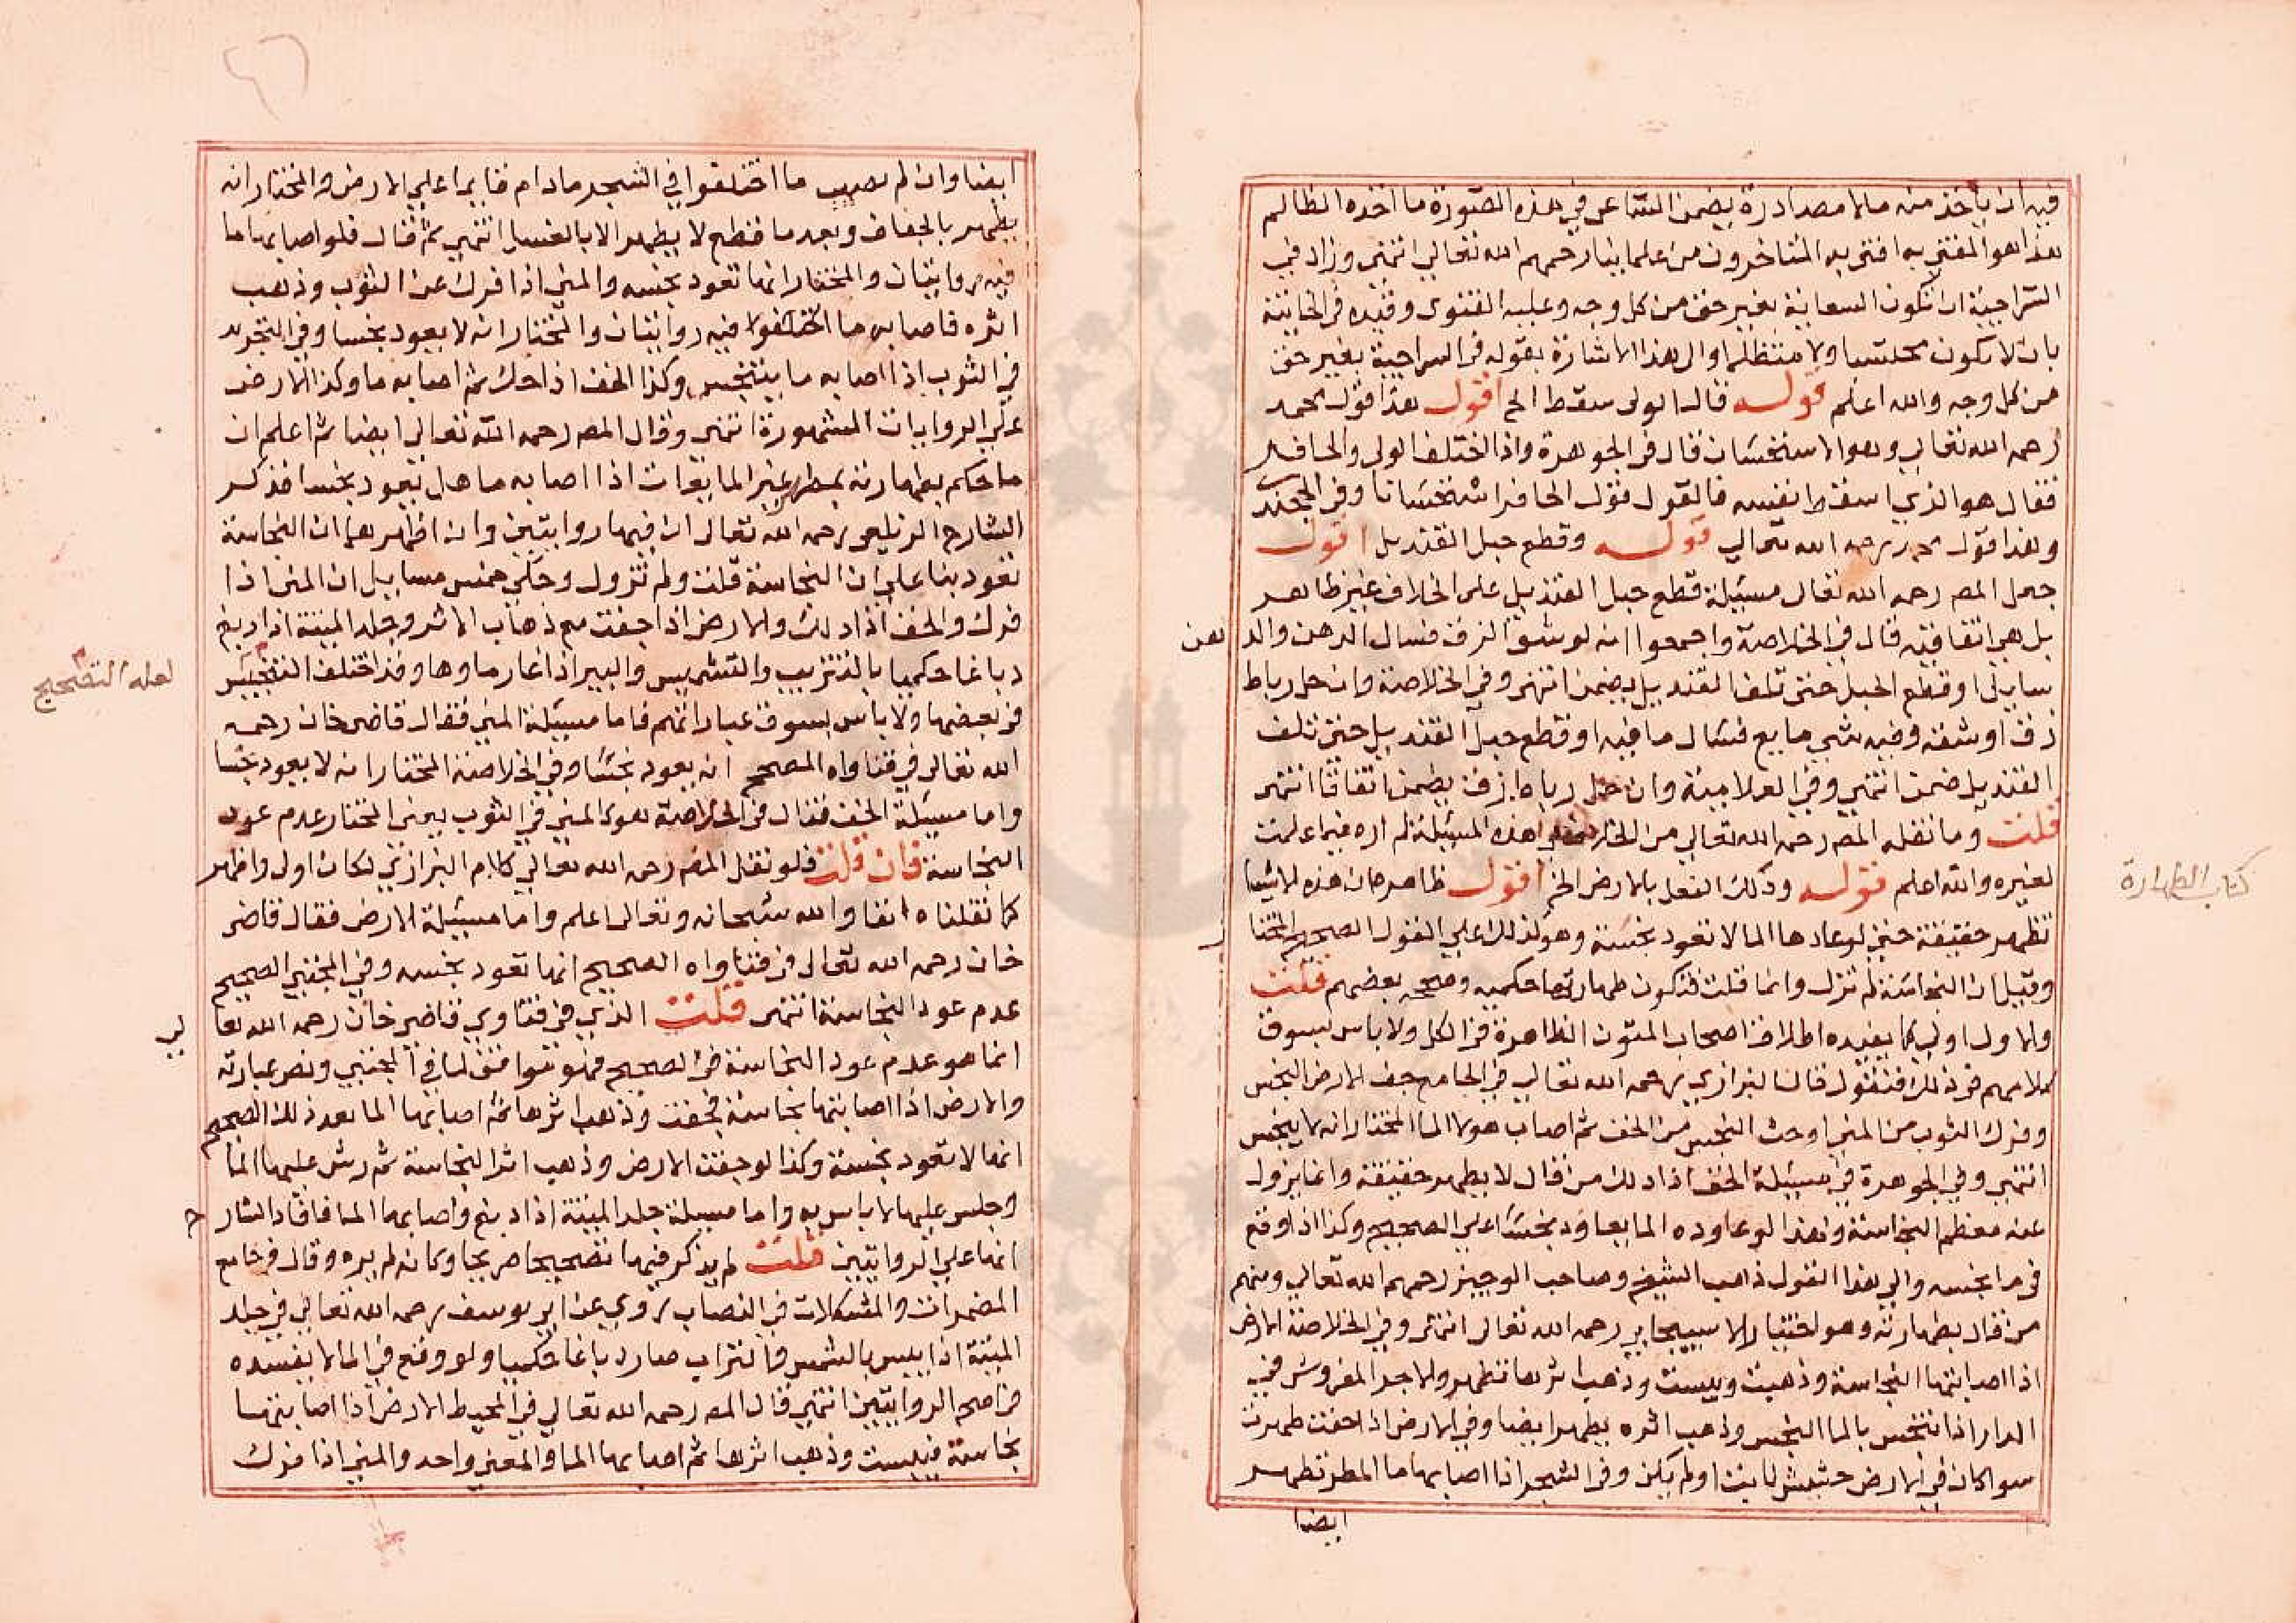 فيه ان ياخذ منه مالا مصادرة يضمن الساعى في هذه الصورة ما اخذه الظالم
هذا هو المفتى به افتى به المتاخرون من علمائنا رحمهم الله تعالى انتهى وزاد في
السراجية ان تكون السعاية بغير حق من كل وجه وعليه الفتوى وقيده في الخانية
بان لا يكون محتسبا ولا متظلما والى هذا الاشارة بقوله في السراجية بغير حق
من كل وجه والله اعلم قوله قال الولى سقط الخ اقول هذا قول محمد
رحمه الله تعالى وهو الاستحسان قال في الجوهرة واذا اختلف الولى والحافر
فقال هو الذي اسقط نفسه فالقول قول الحافر استحسانا وفي
وهذا قول محمد رحمه الله تعالى قوله وقطع حبل القنديل اقول
جعل المص رحمه الله تعالى مسئلة قطع حبل القنديل على الخلاف غير ظاهر
بل هي اتفاقية قال في الخلاصة واجمعوا انه لو شق الزق فسال الدهن والدهن
سايل او قطع الحبل حتى تلف القنديل يضمن انتهى وفي الخلاصة وان حل رباط
زق او شقه وفيه شي مايع فسال ما فيه او قطع حبل القنديل حتى تلف
القنديل ضمن انتهى وفي العلامية وان حل رباط زق يضمن اتفاقا انتهى
قلت وما نقله المص رحمه الله تعالى من الخلاف في هذه المسئلة لم اره فيما علمت
لغيره والله اعلم قوله وذلك الفعل بالارض الخ اقول ظاهره ان هذه الاشيا
كتاب الطهارة
تطهر حقيقة حتى لو عادها الما لا تعود نجسة وهو كذلك على القول الصحيح المختار
وقيل ان النجاسة لم تزل وانما قلت فتكون طهارتها حكميه وصححه بعضهم قلت
والاول اولى كما يفيده اطلاق اصحاب المتون الظاهرة في الكل ولا باس بسوق
كلامهم في ذلك فنقول قال البزازي رحمه الله تعالى في الجامع جف الارض النجس
وفرك الثوب من المني او حت النجس من الخف ثم اصاب هولا الما المختار انه لا ينجس
انتهى وفي الجوهرة في مسئلة الخف اذا دلك من قال لا يطهر حقيقة وانما يزول
عنه معظم النجاسة ولهذا لو عاوده الما يعاود نجسا على الصحيح وكذا اذا وقع
في ما نجسه والى هذا القول ذهب الشيخ وصاحب الوجيز رحمهم الله تعالى ومنهم
من قال بطهارته وهو اختيار الاسبيجابي رحمه الله تعالى انتهى وفي الخلاصة الارض
اذا اصابتها النجاسة وذهبت ويبست وذهب اثرها تطهر والاجر المفروش في
الدار اذا تنجس بالما النجس وذهب اثره يطهر ايضا وفي الارض اذا جفت طهرت
سوا كان في الارض حشيش نابت او لم يكن وفي الشجر اذا اصابها ما المطر تطهر
ايضا
ايضا وان لم يصب ما اختلفوا في الشجر ما دام قايما على الارض والمختار انه
يطهر بالجفاف وبعد ما قطع لا يطهر الا بالغسل انتهى ثم قال فلو اصابها ما
فيه روايتان والمختار انها تعود نجسه والمني اذا فرك عن الثوب وذهب
اثره فاصابه ما اختلفوا فيه روايتان والمختار انه لا يعود نجسا وفي التجريد
في الثوب اذا اصابه ما يتنجس وكذا الخف اذا حك ثم اصابه ما وكذا الارض
على الروايات المشهورة انتهى وقال المص رحمه الله تعالى ايضا ثم اعلم ان
ما حكم بطهارته بمطهر غير المايعات اذا اصابه ما هل يعود نجسا فذكر
الشارح الزيلعي رحمه الله تعالى ان فيها روايتين وان اظهرهما ان النجاسة
تعود بنا على ان النجاسة قلت ولم تزول وحكى خمس مسايل ان المني اذا
فرك والخف اذا دلك والارض اذا جفت مع ذهاب الاثر وجلد الميتة اذا دبغ
دباغا حكميا بالتتريب والتشميس والبير اذا غار ماوها وقد اختلف التنجيس
لعله التصحيح
في بعضها ولا باس بسوق عباراتهم فاما مسئلة المني فقال قاضي خان رحمه
الله تعالى في فتاواه المصحح انه يعود نجسا وفي الخلاصة المختار انه لا يعود نجسا
واما مسئلة الخف فقال في الخلاصة هو كالمني في الثوب يعني المختار عدم عود
النجاسة فان قلت فلو نقل المص رحمه الله تعالى كلام البزازي لكان اولى واظهر
كما نقلناه انفا والله سبحانه وتعالى اعلم واما مسئلة الارض فقال قاضي
خان رحمه الله تعالى في فتاواه الصحيح انها تعود نجسه وفي المجتبى الصحيح
عدم عود النجاسة انتهى قلت الذي في فتاوي قاضي خان رحمه الله تعالى
انما هو عدم عود النجاسة في الصحيح فهو موافق لما في المجتبى ونص عبارته
والارض اذا اصابتها نجاسة فجفت وذهب اثرها ثم اصابها الما بعد ذلك الصحيح
انها لا تعود نجسة وكذا لو جفت الارض وذهب اثر النجاسة ثم رش عليها الما
وجلس عليها لا باس به واما مسيلة جلد الميتة اذا دبغ واصابها الما فافاد الشارح
انها على الروايتين قلت لم يذكر فيها تصحيحا صريحا وكانه لم يره وقال في جامع
المضمرات والمشكلات في النصاب روي عن ابي يوسف رحمه الله تعالى في جلد
الميتة اذا يبس بالشمس والتراب صار دباغا حكميا ولو وقع في الما لا يفسده
في اصح الروايتين انتهى قال المص رحمه الله تعالى في المحيط الارض اذا اصابتها
نجاسة فيبست وذهب اثرها ثم اصابها الما والمعنى واحد والمني اذا فرك